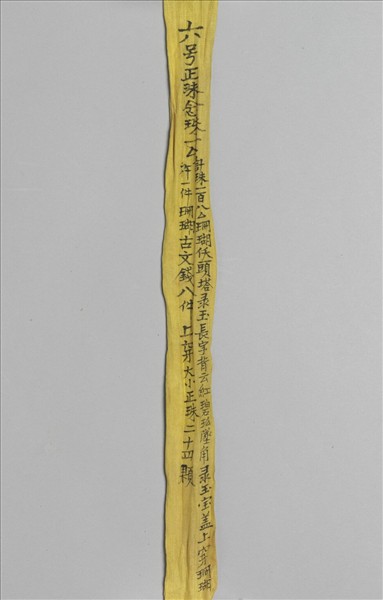 六号正珠念珠一厶
計珠一百八厶珊瑚仸頭塔录玉長字背云紅碧瑶墜角录玉宝盖上穿珊瑚
杵一件珊瑚古文錢八件上穿大小正珠二十四顆